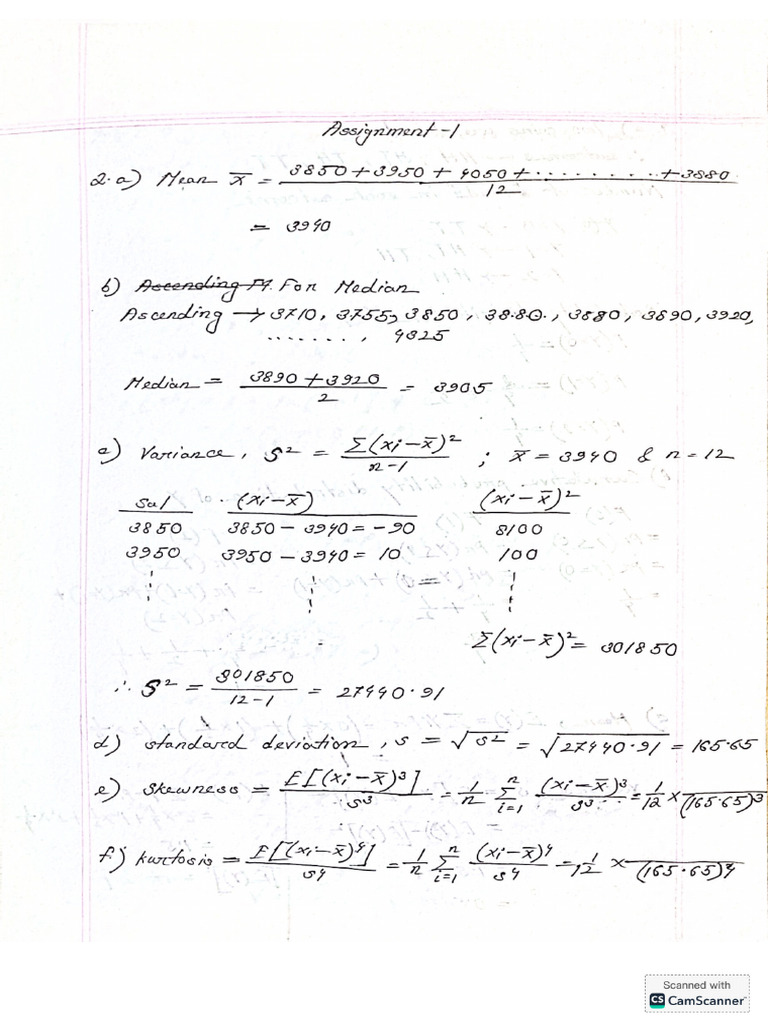 Assignment-1
2.a) Mean x̄ = (3850 + 3950 + 4050 + ......... + 3880) / 12
= 3940
b) ~~Ascending~~ For Median
Ascending → 3710, 3755, 3850, 3880, 3880, 3890, 3920,
......., 4325
Median = (3890 + 3920) / 2 = 3905
c) Variance, S² = Σ(xi − x̄)² / (n−1) ; x̄ = 3940 & n = 12
Sal (xi − x̄) (xi − x̄)²
3850 3850 − 3940 = −90 8100
3950 3950 − 3940 = 10 100
Σ(xi − x̄)² = 301850
∴ S² = 301850 / (12−1) = 27440.91
d) standard deviation, s = √s² = √27440.91 = 165.65
e) skewness = E[(xi − x̄)³] / s³ = 1/n Σ_{i=1}^{n} (xi − x̄)³ / s³ = 1/12 × ___ / (165.65)³
f) kurtosis = E[(xi − x̄)⁴] / s⁴ = 1/n Σ_{i=1}^{n} (xi − x̄)⁴ / s⁴ = 1/12 × ___ / (165.65)⁴
Scanned with
CS CamScanner